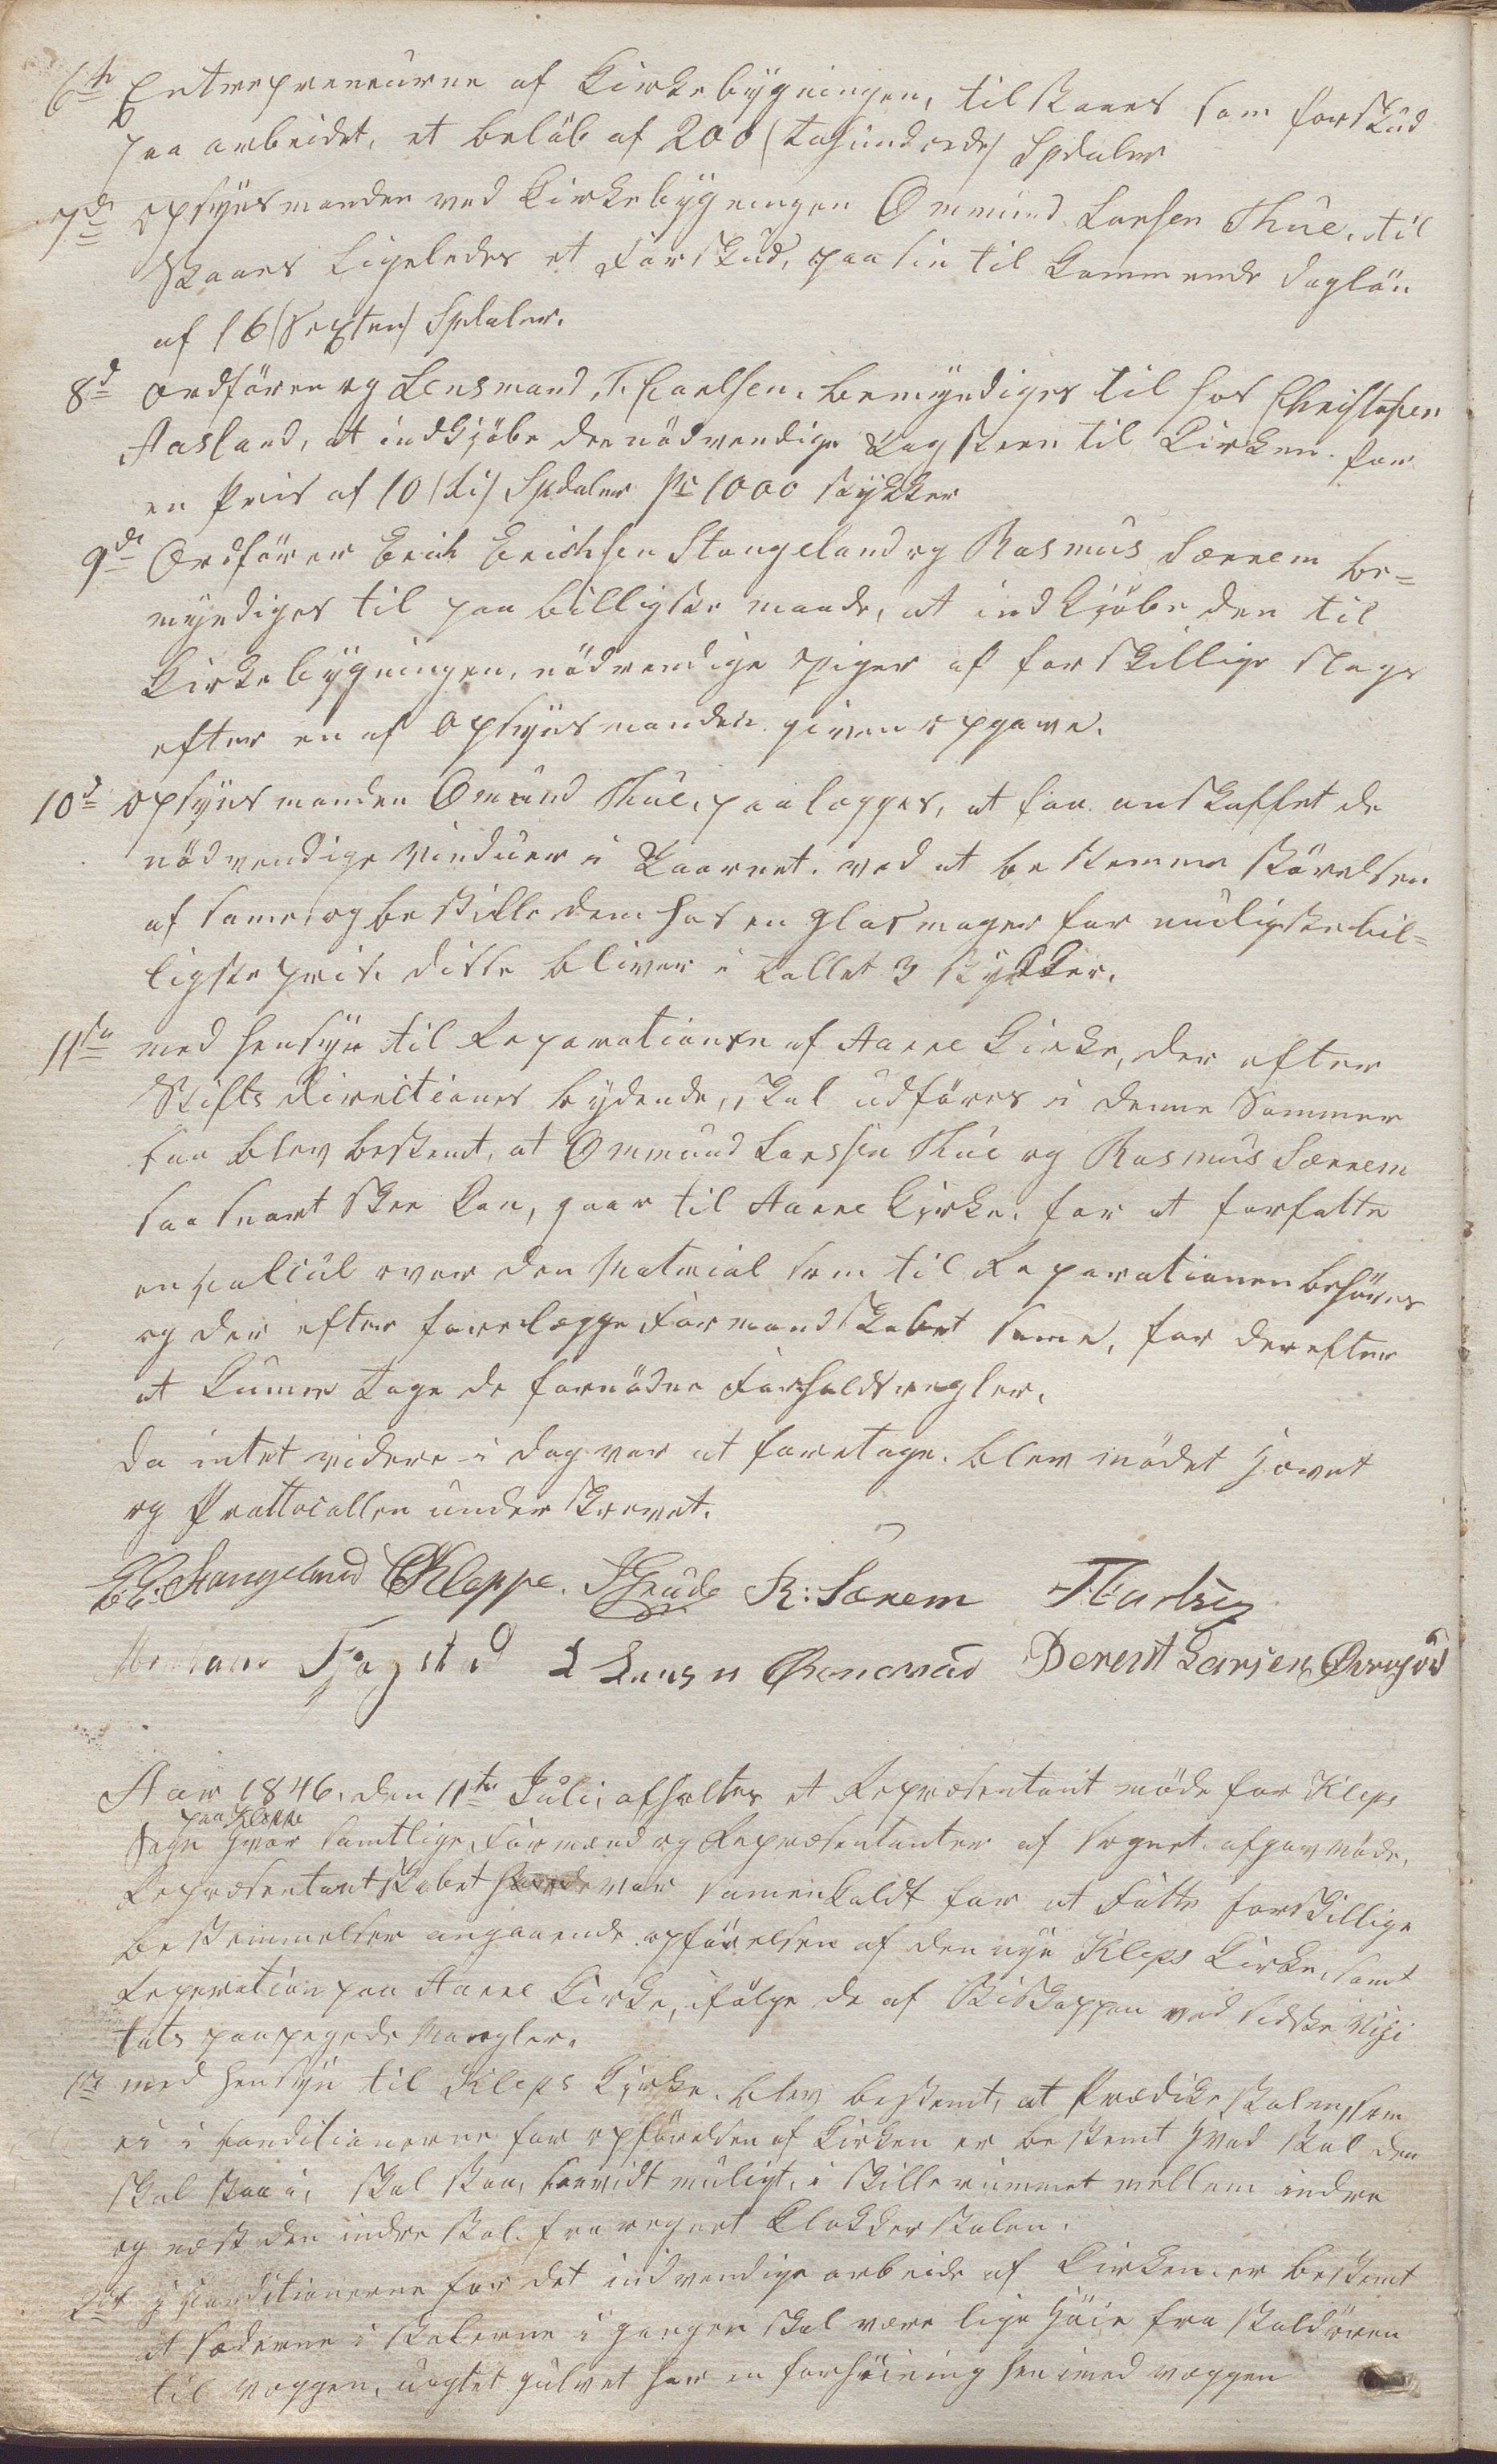 6te Entrepreneurne af Kirkebygningen, tilstaaes som forskud
paa arbeidet, et beløb af 200 (tohundrede) Spdaler
7de Opsynsmanden ved Kirkebygningen Ommund Larsen Thue, til
staaes ligeledes et Forskud, paa sin til kommende dagløn
af 16 (Sexten) Spdaler.
8de Ordføren og Lensmand, T. Carlsen. bemyndiges til hos Christofer
Aasland, at indkjøbe den nødvendige Tagsteen til Kirken. for
en Pris af 10 (ti) Spdaler pr 1000 stykker
9de Ordfører Erich Erichsen Stangeland og Rasmus Særem be=
myndiges til paa billigste maade, at indkjøbe den til
Kirkebygningen, nødvendige spiger af forskillige slags
efter en af Opsynsmanden given opgave.
10de Opsynsmanden Omund Thue, paalægges, at faa anskaffet de
nødvendige Vinduer i Taarnet. ved at bestemme størelsen
af samme og bestille dem hos en glasmager for muligste bil=
ligste pris. disse bliver i tallet 3 stykker.
11te med hensyn til Reparationen af Aarre Kirke, der efter
Stifts directionens bydende, skal udføres i denne Sommer
saa blev bestemt, at Ommund Larssen Thue og Rasmus Særem
saa snart skee kan, gaar til Aarre Kirke. for at forfatte
en calcul over den Material som til Reparationen behøves
og der efter forelægge Formandskabet samme, for derefter
at kunne tage de fornødne Forholdsregler.
da intet videre i dag var at foretage. blev mødet hævet
og Prottocollen underskrevet.
E. E. Stangeland OKleppe. SGrude R: Særem TCarlsen
Fjogstad L Larsen Berent Larsen
Aar 1846. den 11te Juli, afholtes et Repræsentant møde for Klep
paa Kleppe
Sogn hvor samtlige Formænd og Repræsentanter af Sognet. afgav møde,
Repræsentantskabet havde var samenkaldt for at fatte forskillige
bestemmelser angaaende opførelsen af den nye Kleps Kirke, samt
Reperation paa Aarre Kirke, ifølge de af Biskoppen ved sidste Visi
tats paapegede Mangler.
1te med hensyn til Kleps Kirke. blev bestemt, at Prædikestolen, som
ei i Conditionerne for opførelsen af Kirken er bestemt hvad stol den
skal staa i, skal staa, saavidt muligt, i skillerummet mellem indre
og næst den indre stol. fra regnet Klokkerstolen.
2det I Conditionerne for det indvendige arbeide af Kirken. er bestemt
at sæderne i stolerne i gangen skal være lige høie fra stoldøren
til væggen, uagtet gulvet har en forhøining hen imod væggen